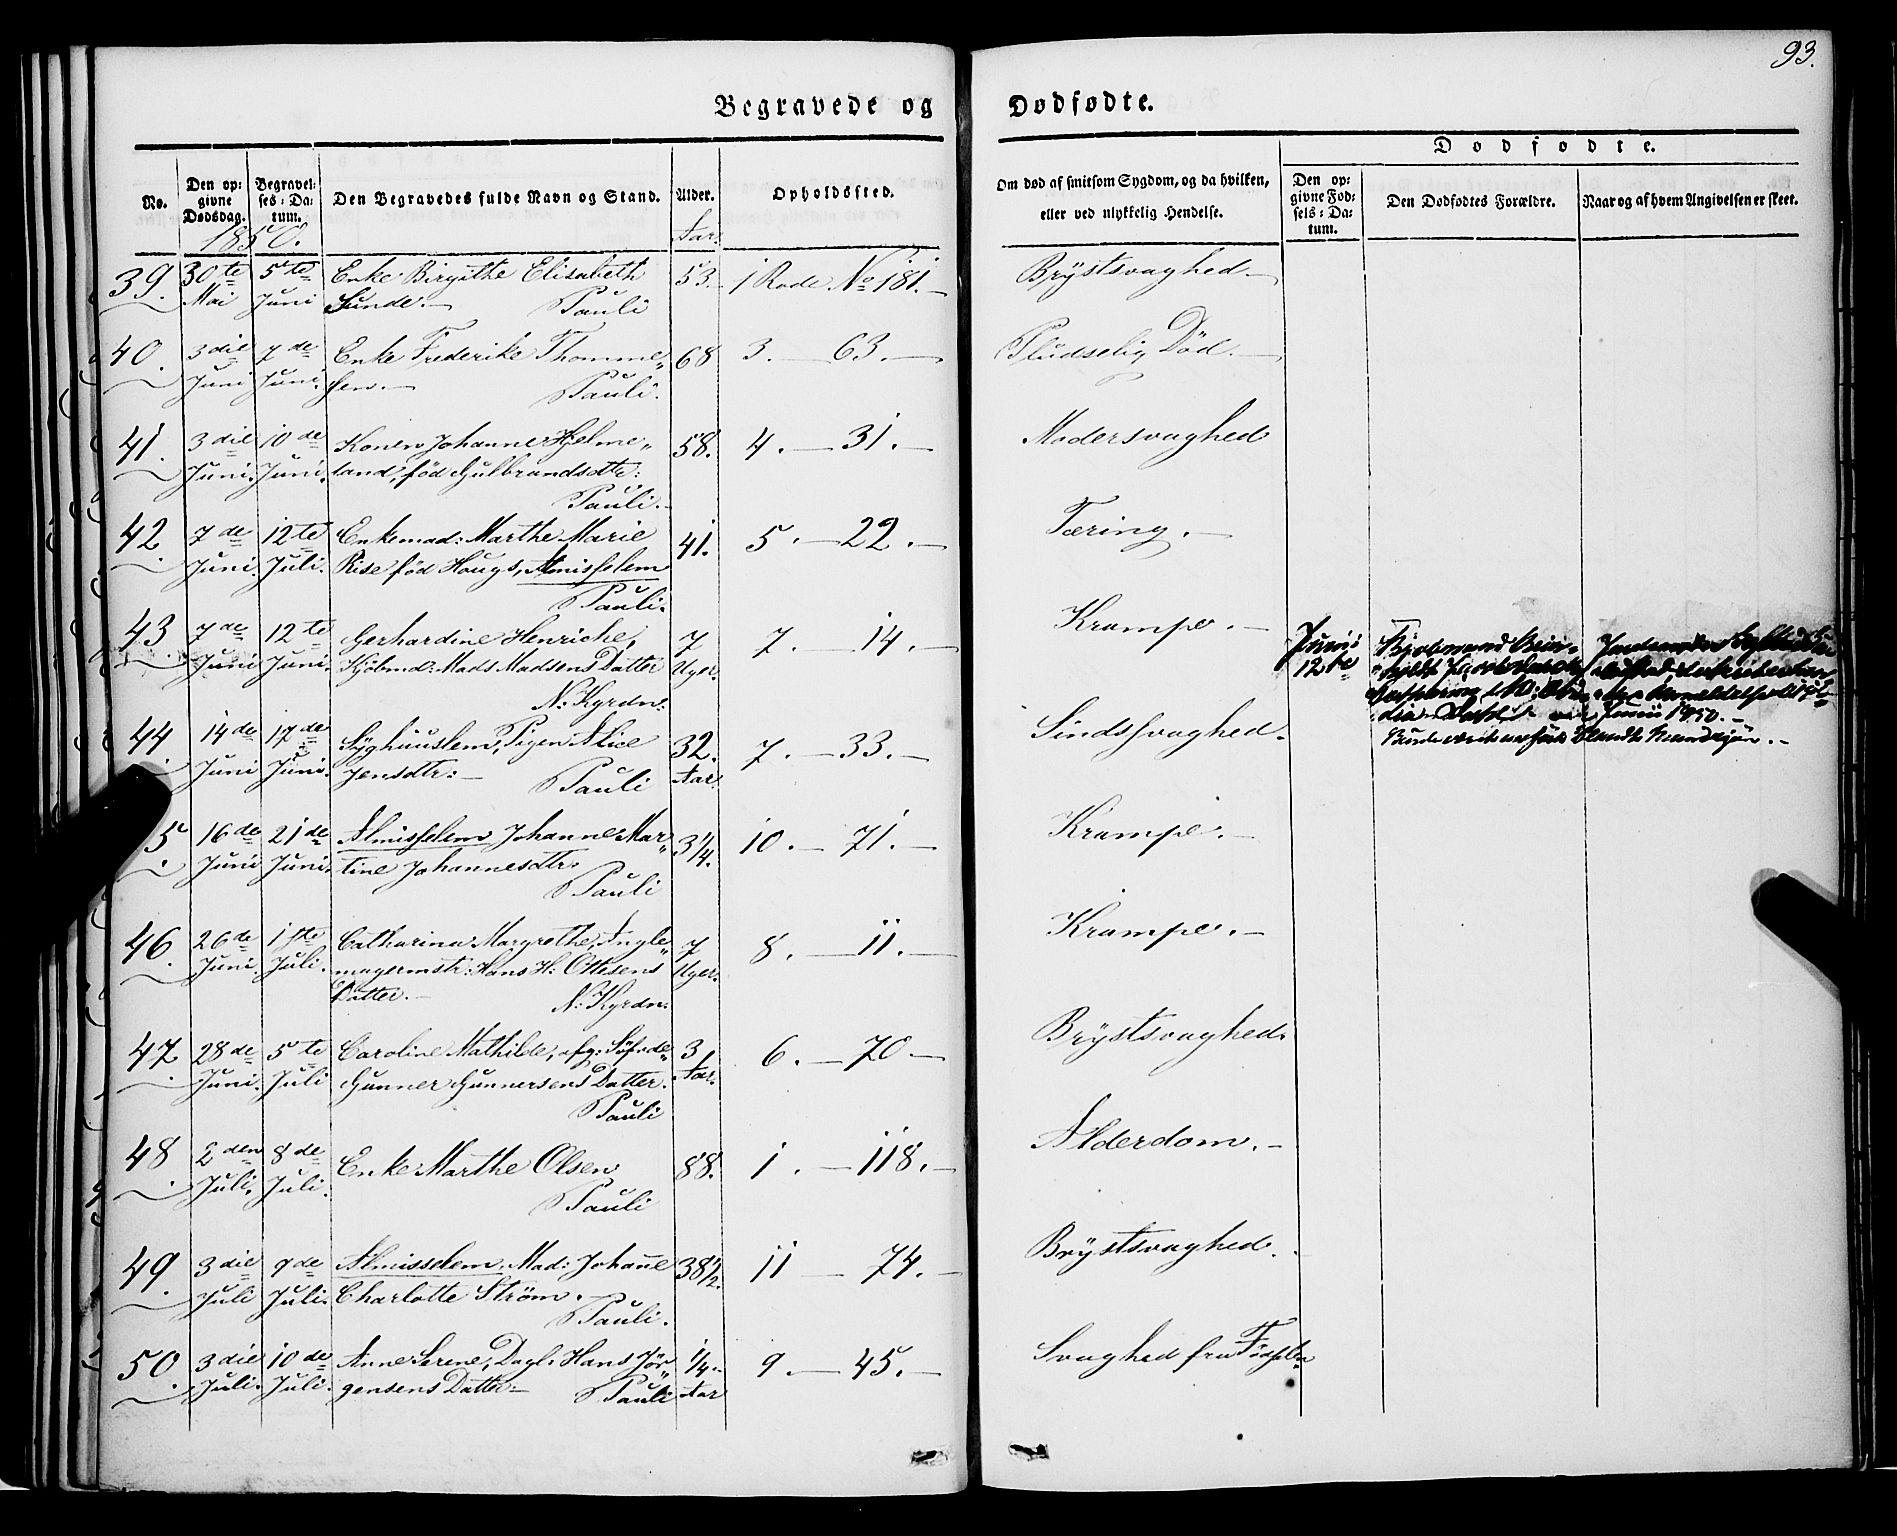 93.
Begravede og Dødfødte.
Dødfødte.
No.
Den opgivne Dødsdag.
Begravelses-Datum.
Den Begravedes fulde Navn og Stand.
Alder.
Opholdssted.
Om død af smitsom Sygdom, og da hvilken,
eller ved ulykkelig Hendelse.
Den opgivne Fødsels-Datum.
Den Dødfødtes Forældre.
Naar og af hvem Angivelsen er skeet.
1850.
Aar.
39. 30te 5te Enke Birgithe Elisabeth 53. 1 Rode No 181. Brÿstsvaghed
Mai Juni Sunde. Pauli
40. 3die 7de Enke Frederike Thomme„ 68 3. 63. Pludselig Død.
Juni Juni. sen. Pauli.
41. 3die 10de Konen Johanne Hjelme„ 58. 4. 31. Modersvaghed
Juni. Juni. land, fød Gulbrandsdtr:
Pauli.
42. 7de 12te Enkemad: Marthe Marie 41. 5. 22. Tæring.
Juni. Juli. Rise fød Hougs, Almisselem
Pauli.
43 7de 12te Gerhardine Henriche, 7 7. 14. Krampe.
Juni Juni. Kjöbmd: Mads Madsens Datter Uger.
N: Kyrdn:
Junii
12te
Junii 1850.
44 14de 17de Sÿghuuslem, Pigen Alice 32. 7. 33. Sindssvaghed.
Juni Juni. Jensdtr: Pauli Aar.
5 16de 21de Almisselem, Johanne Mar„ 3 1/4. 10. 71. Krampe.
Juni Juni. tine Johannesdtr:
Pauli
46. 26de 1ste Catharina Margrethe, 7 8. 11. Krampe.
Juni. Juli. magermstr: Hans H: Ottesens Uger.
Datter. N: Kyrdn:
47 28de 5te Caroline Mathilde, afg: 3 6. 70 Brÿstsvaghed.
Juni. Juli Gunner Gunnersens Datter. Aar.
Pauli
48 2den 8de Enke Marthe Olsen 88. 1. 118. Alderdom.
Juli. Juli. Pauli
49. 3die 9de Almisselem, Mad: Johan̄e 38 1/2. 11 74. Brÿstsvaghed.
Juli Juli. Charlotte Strøm.
Pauli.
50. 3die 10de Anne Serene, Dagl: Hans Jör„ 1/4 9. 45. Svaghed fra Fødselen
Juli. Juli. gensens Datter Pauli Aar